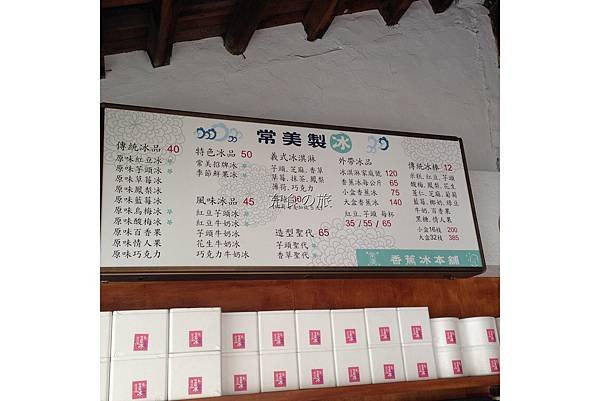 常美製冰
傳統冰品 40
原味紅豆冰
原味芋頭冰
原味草莓冰
原味鳳梨冰
原味藍莓冰
原味烏梅冰
原味酸梅冰
原味百香果
原味情人果
原味巧克力
特色冰品 50
常美招牌冰
季節鮮果冰
風味冰品 45
紅豆芋頭冰
紅豆牛奶冰
芋頭牛奶冰
花生牛奶冰
巧克力牛奶冰
義式冰淇淋
芋頭,芝麻,香草
草莓,抹茶,鳳梨
薄荷,巧克力
造型聖代 65
芋頭聖代
香草聖代
外帶冰品
冰淇淋家庭號 120
香蕉冰每公斤 65
小盒香蕉冰 75
大盒香蕉冰 140
紅豆,芋頭 每杯
35 / 55 / 65
傳統冰棒 12
米糕,紅豆,芋頭
酸梅,鳳梨,花生
薏仁,芝麻,葡萄
藍莓,椰奶,綠豆
牛奶,百香果
黑糖,情人果
小盒16枝 200
大盒32枝 385
香蕉冰本舖
在食の旅